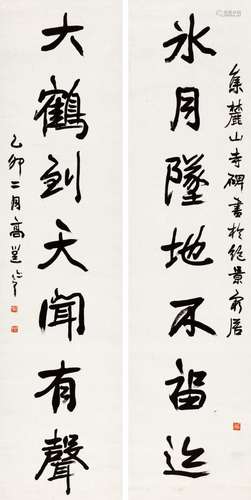 集麓山寺碑書於絕景
氷月墜地不留迹
大鶴到天聞有聲
乙卯二月高邕之